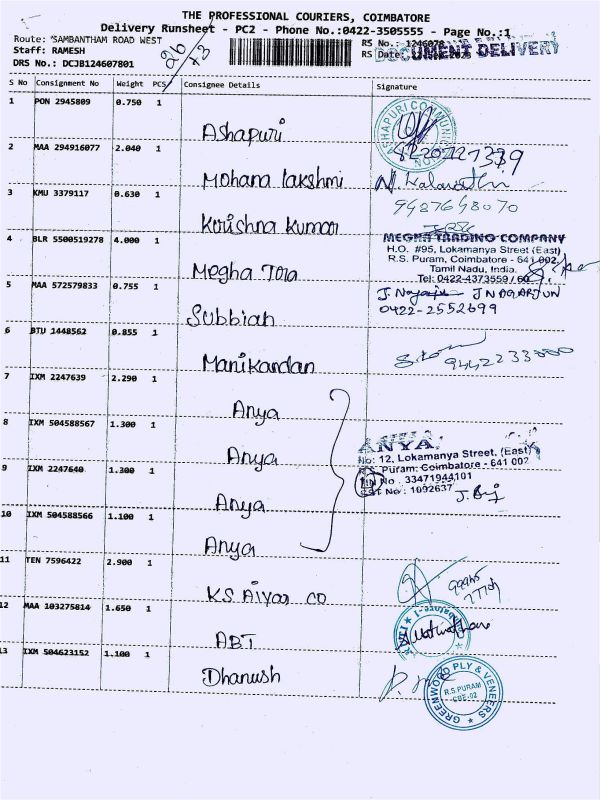 THE PROFESSIONAL COURIERS, COIMBATORE
Delivery Runsheet - PC2 - Phone No.:0422-3505555 - Page No.:1
Route: SAMBANTHAM ROAD WEST
RS No.:
Staff: RAMESH
RS Date:
DOCUMENT DELIVERY
DRS No.: DCJB124607801
S No Consignment No Weight PCS Consignee Details Signature
1 PON 2945809 0.750 1
Ashapuri
ASHAPURI COMMUNICATION
2 MAA 294916077 2.040 1
Mohana lakshmi
3 KMU 3379117 0.630 1
9487648070
Krishna kumar
4 BLR 5500519278 4.000 1
MEGHA TRADING COMPANY
H.O. #95, Lokamanya Street (East)
R.S. Puram, Coimbatore - 641 002.
Tamil Nadu, India.
Tel: 0422-4373559 /
Megha Tra
5 MAA 572579833 0.755 1
J. NAGARJUN
0422-2552699
Subbiah
6 BTU 1448562 0.855 1
Manikandan
7 IXM 2247639 2.290 1
Anya
8 IXM 504588567 1.300 1
Anya
ANYA
No: 12, Lokamanya Street, (East)
R.S. Puram, Coimbatore - 641 002
TIN No : 33471944101
CST No : 1092637
9 IXM 2247640 1.300 1
Anya
10 IXM 504588566 1.100 1
Anya
11 TEN 7596422 2.900 1
KS Aiyar co
12 MAA 103275814 1.650 1
ABT
13 IXM 504623152 1.100 1
Dhanush
GREENWOOD PLY & VENEERS
R.S.PURAM
CBE-02